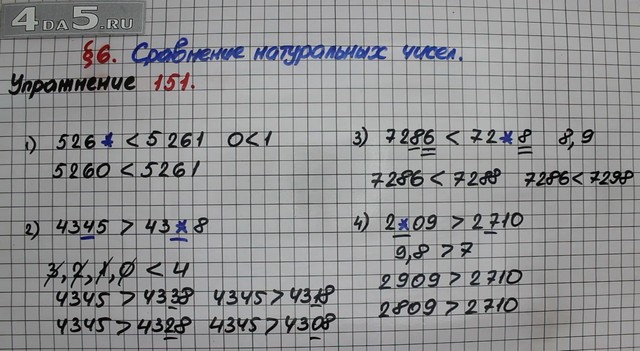 4DA5.RU
§6. Сравнение натуральных чисел.
Упражнение 151.
1) 526* < 5261 0<1
5260 < 5261
2) 4345 > 43*8
3, 2, 1, 0 < 4
4345 > 4338 4345 > 4318
4345 > 4328 4345 > 4308
3) 7286 < 72*8 8,9
7286 < 7288 7286 < 7298
4) 2*09 > 2710
9,8 > 7
2909 > 2710
2809 > 2710